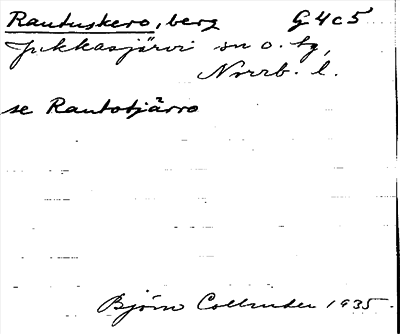 Rautuskero, berg G4c5
Jukkasjärvi sn o. tg,
Norrb. l.
se Rautotjärro
Björn Collinder 1935.